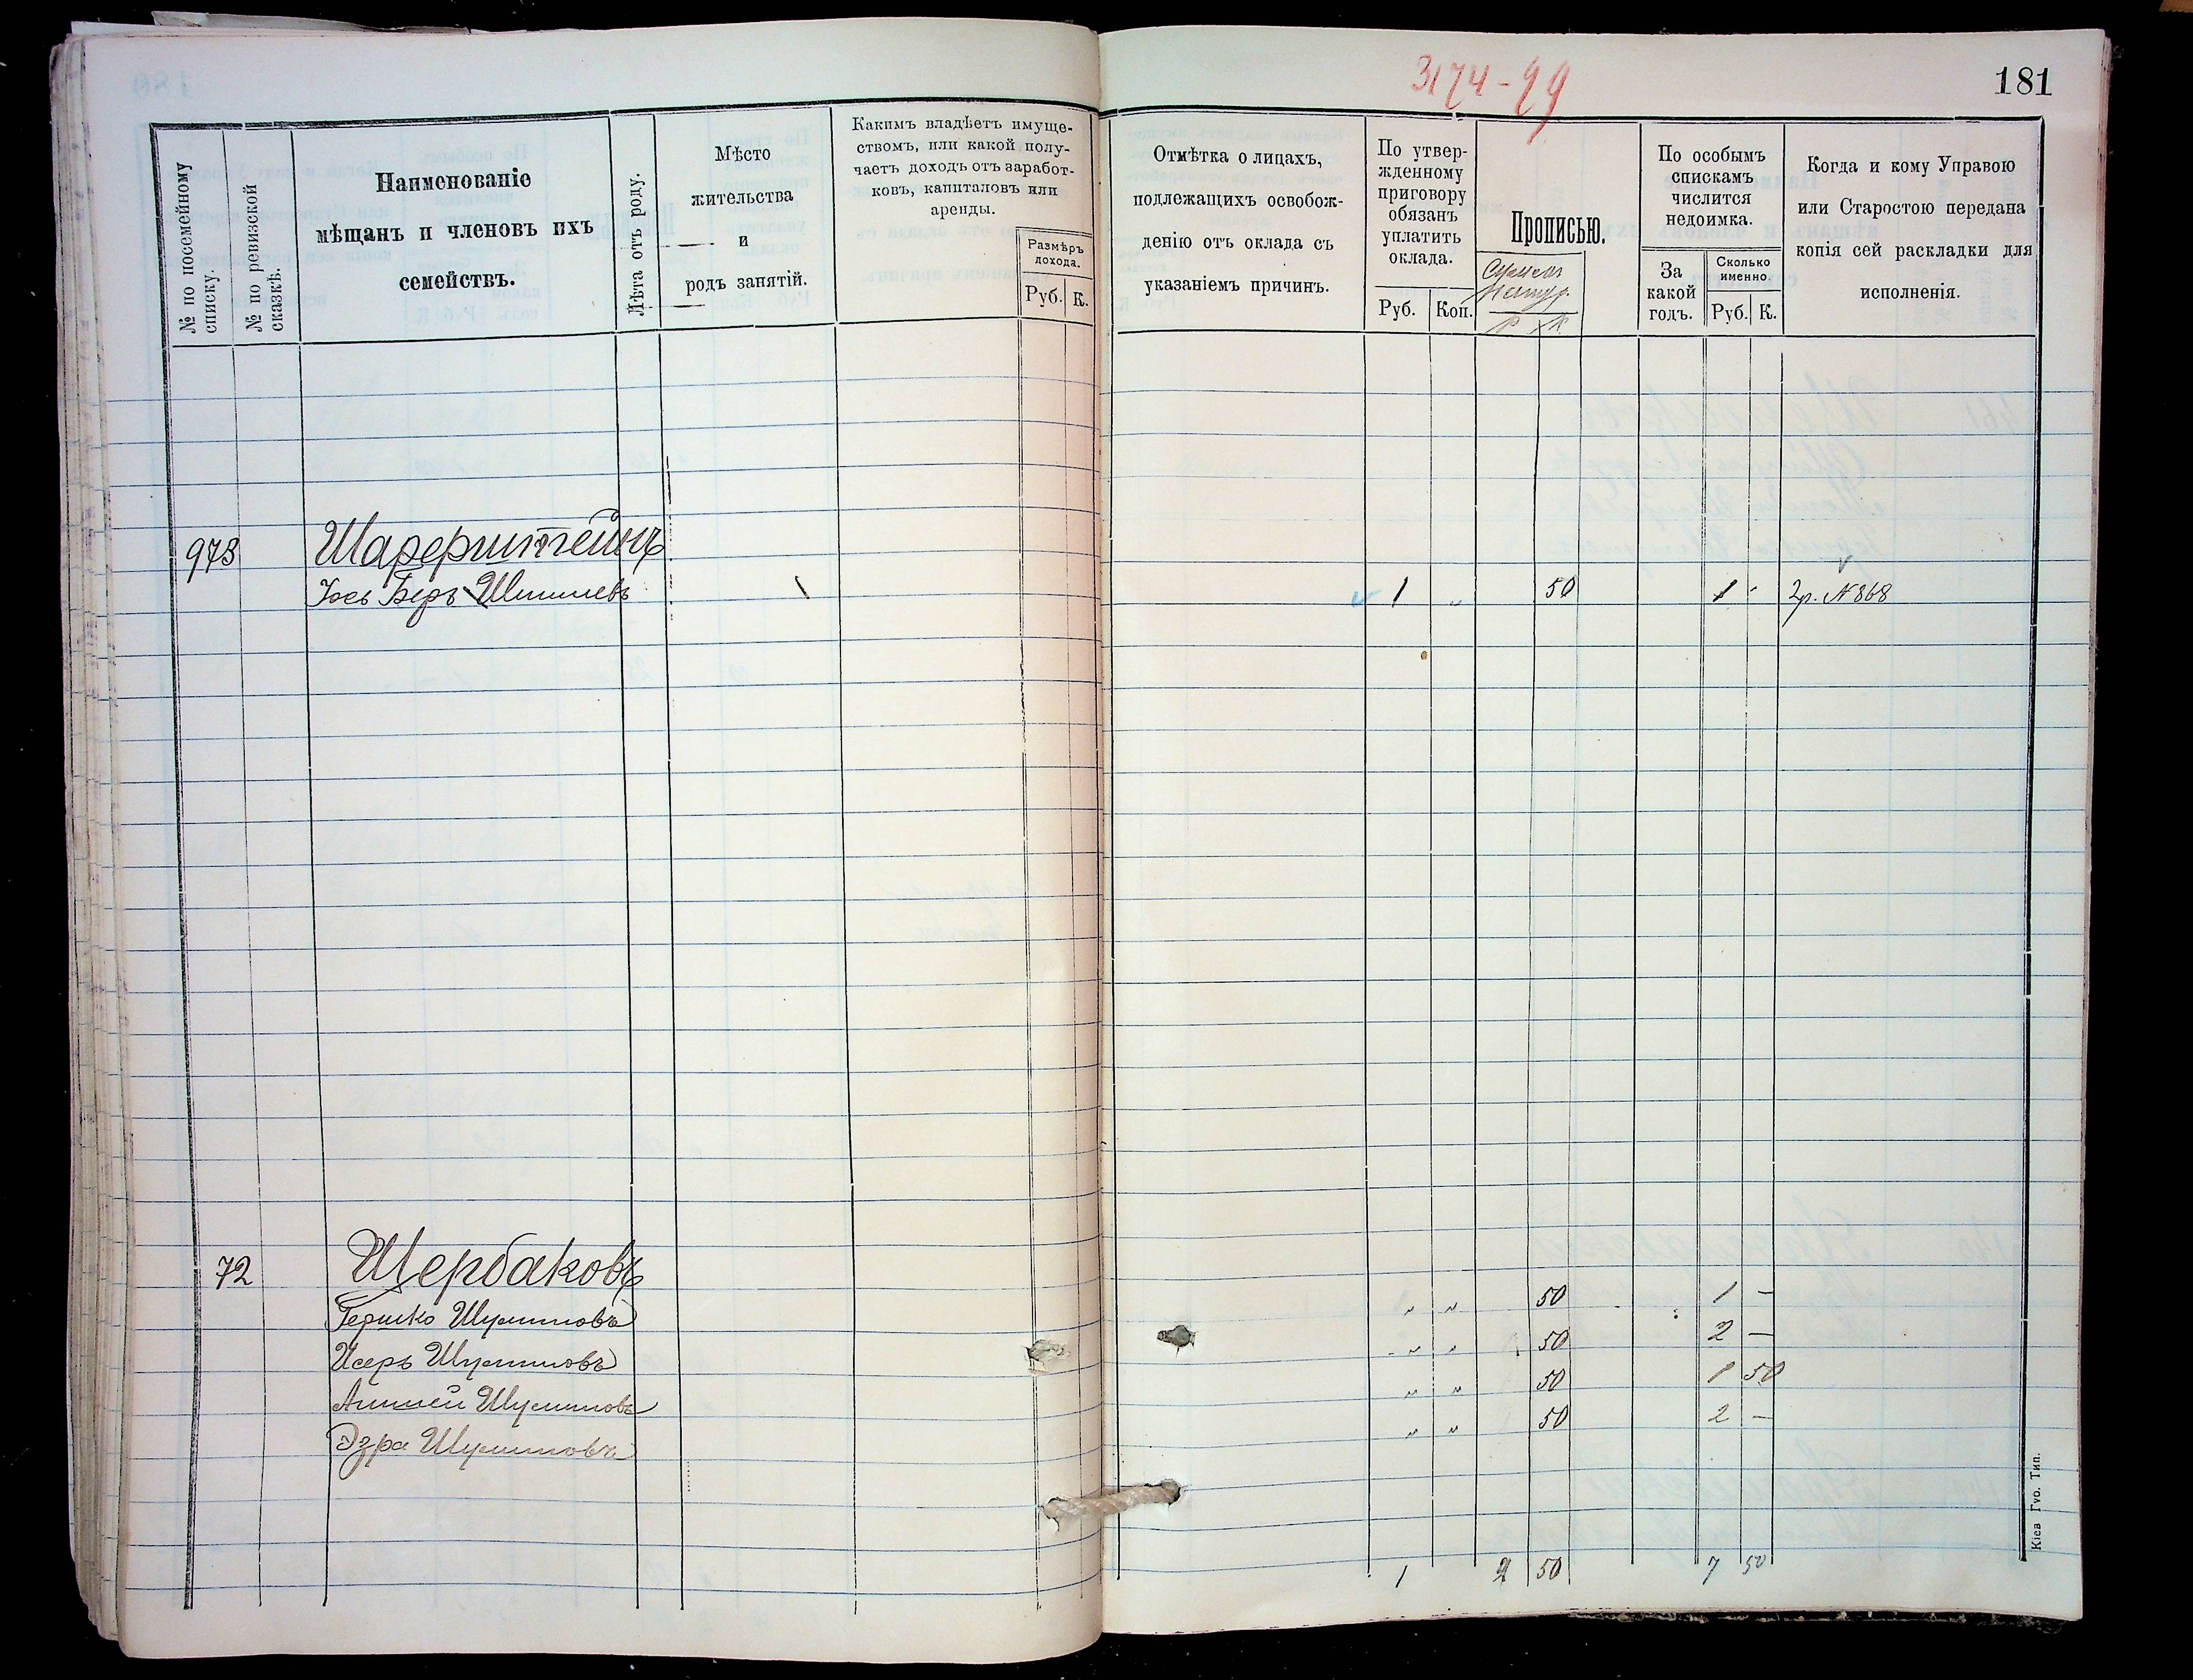 3174-99
181
№ по посемейному списку.
№ по ревизской сказкѣ.
Наименованіе
мѣщанъ и членовъ ихъ
семействъ.
Лѣта отъ роду.
Мѣсто
жительства
и
родъ занятій.
Какимъ владѣетъ имуще-
ствомъ, или какой полу-
чаетъ доходъ отъ заработ-
ковъ, капиталовъ или
аренды.
Размѣръ
дохода.
Руб. К.
Отмѣтка о лицахъ,
подлежащихъ освобож-
денію отъ оклада съ
указаніемъ причинъ.
По утвер-
жденному
приговору
обязанъ
уплатить
оклада.
Руб. Коп.
Прописью.
Р К
По особымъ
спискамъ
числится
недоимка.
За
какой
годъ.
Сколько
именно
Руб. К.
Когда и кому Управою
или Старостою передана
копія сей раскладки для
исполненія.
973 Шарерштейнъ
Іось Беръ Шмилевъ 1 „ 50 1 - 2р. №868
72 Щербаковъ
Гершко Шулимовъ „ „ 50 1 —
Исеръ Шулимовъ „ „ 50 2 —
Аншей Шулимовъ „ „ 50 1 50
Эзра Шулимовъ „ „ 50 2 —
1 2 50 7 50
Кіев Гуо. Тип.